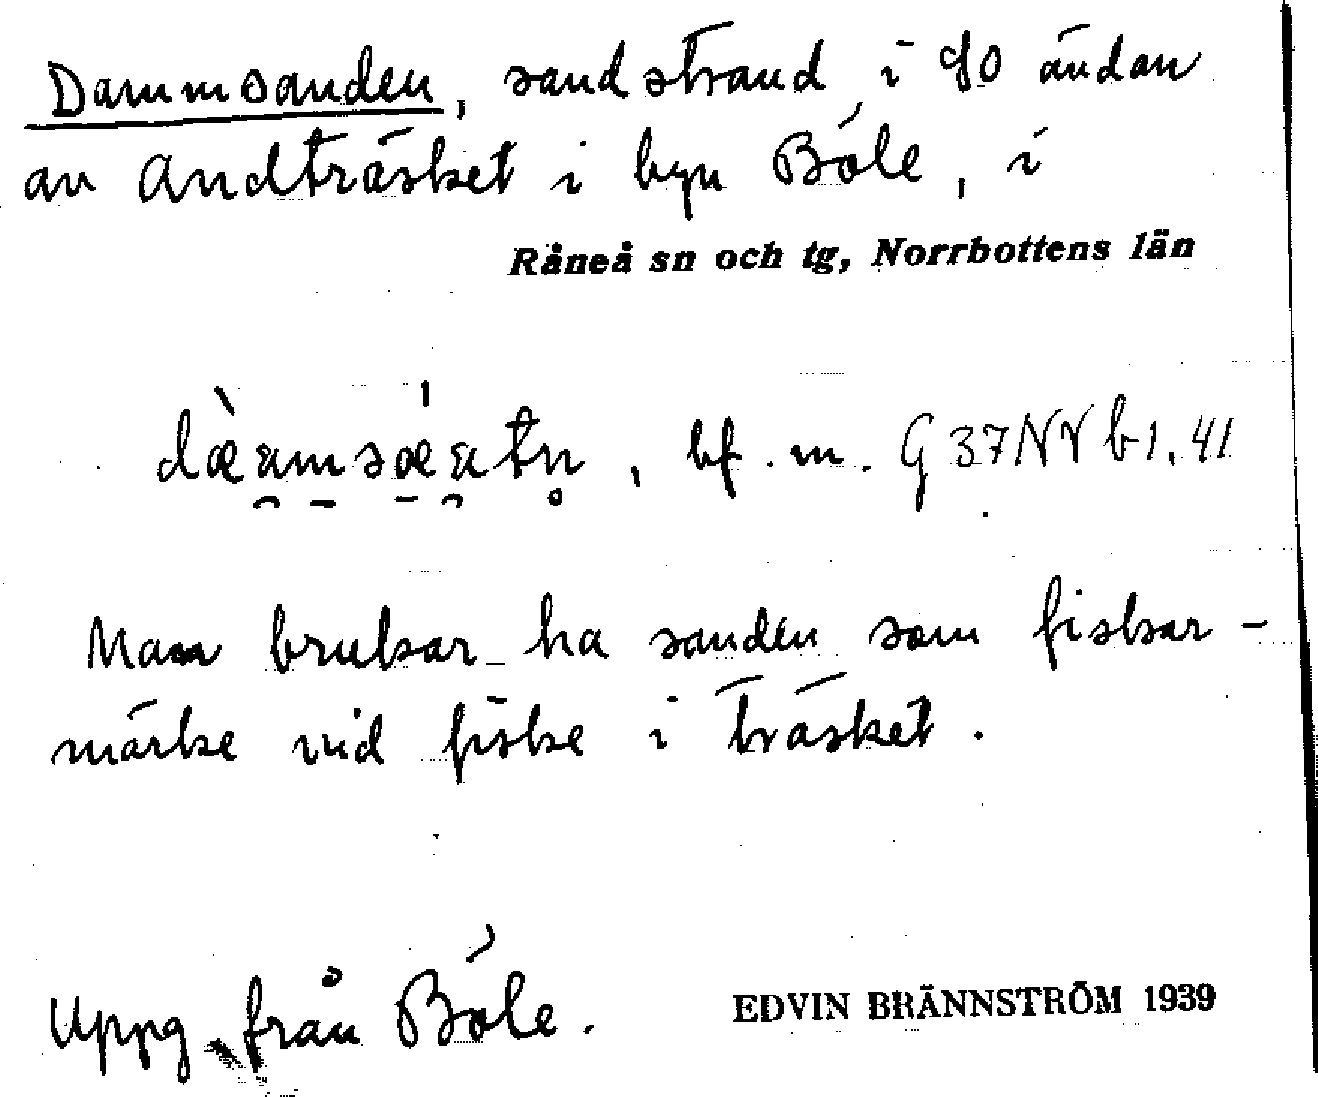 Dammsanden, sandstrand i SO ändan
av Andträsket i byn Böle, i
Råneå sn och tg, Norrbottens län
bf. m. G 37 NV b1, 41
Man brukar ha sanden som fiskar-
märke vid fiske i träsket.
Uppg. från Böle.
EDVIN BRÄNNSTRÖM 1939